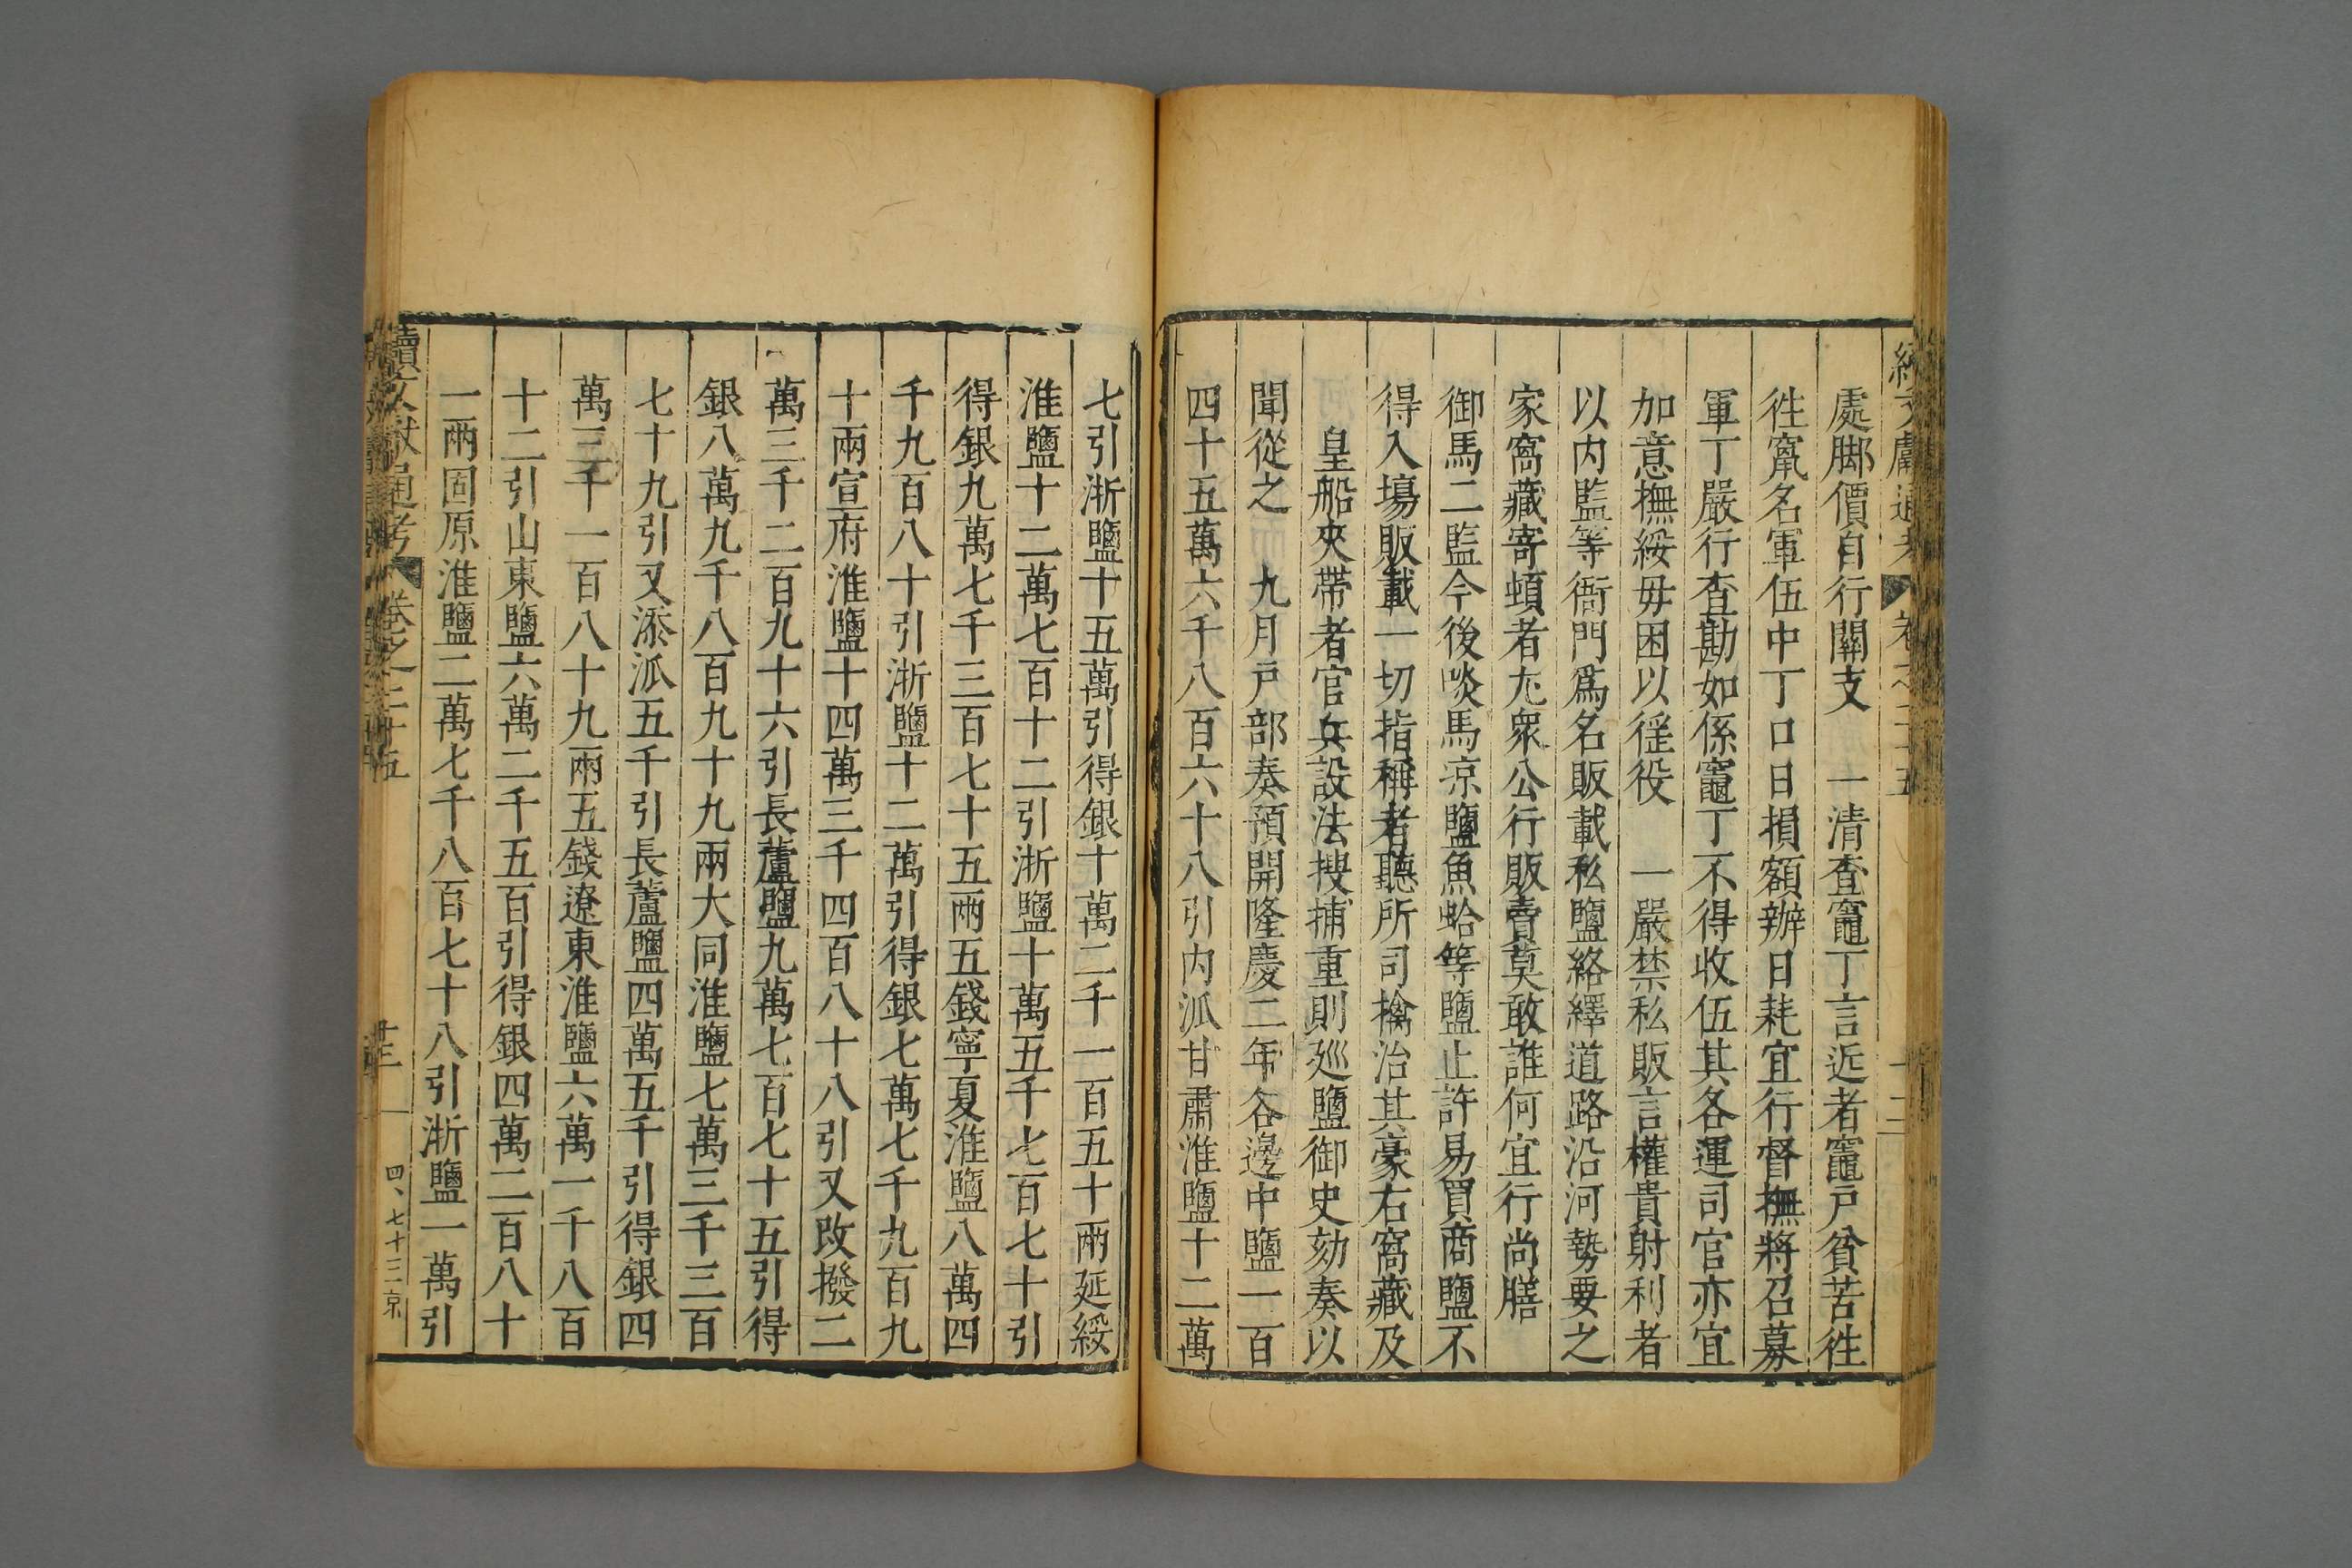 處脚價自行關支　一清查竈丁言近者竈戶貧苦徃
徃竄名軍伍中丁口日損額辦日耗宜行督撫將召募
軍丁嚴行查勘如係竈丁不得收伍其各運司官亦宜
加意撫綏毋困以徭役　一嚴禁私販言權貴射利者
以內監等衙門爲名販載私鹽絡繹道路沿河勢要之
家窩藏寄頓者尤衆公行販賣莫敢誰何宜行尚膳
御馬二監今後啖馬凉鹽魚蛤等鹽止許易買商鹽不
得入塲販載一切指稱者聽所司擒治其豪右窩藏及
皇船夾帶者官兵設法搜捕重則廵鹽御史劾奏以
聞從之　九月戶部奏預開隆慶二年各邊中鹽一百
四十五萬六千八百六十八引內派甘肅淮鹽十二萬
七引浙鹽十五萬引得銀十萬二千一百五十兩延綏
淮鹽十二萬七百十二引浙鹽十萬五千七百七十引
得銀九萬七千三百七十五兩五錢寧夏淮鹽八萬四
千九百八十引浙鹽十二萬引得銀七萬七千九百九
十兩宣府淮鹽十四萬三千四百八十八引又改撥二
萬三千二百九十六引長蘆鹽九萬七百七十五引得
銀八萬九千八百九十九兩大同淮鹽七萬三千三百
七十九引又添派五千引長蘆鹽四萬五千引得銀四
萬三千一百八十九兩五錢遼東淮鹽六萬一千八百
十二引山東鹽六萬二千五百引得銀四萬二百八十
一兩固原淮鹽二萬七千八百七十八引浙鹽一萬引
續文獻通考　卷之二十五
四、七十三京